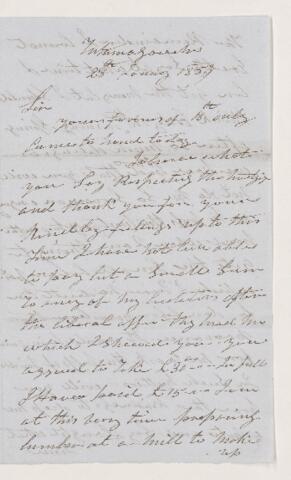 Tatamagouche
25th January 1859
Sir
yours favour of 15th only
Came to hand to day
I observe what
you Say Respecting the
and thank you for your
Kindly feelings up to this
Time I have not been able
to pay but a Small Sum
to any of my Creditors after
the liberal offer they made me
which I Shewed you - you
agreed to Take £30 - in full
I Have paid £15 - I am
at this very time preparing
lumber at a Mill to Make
up